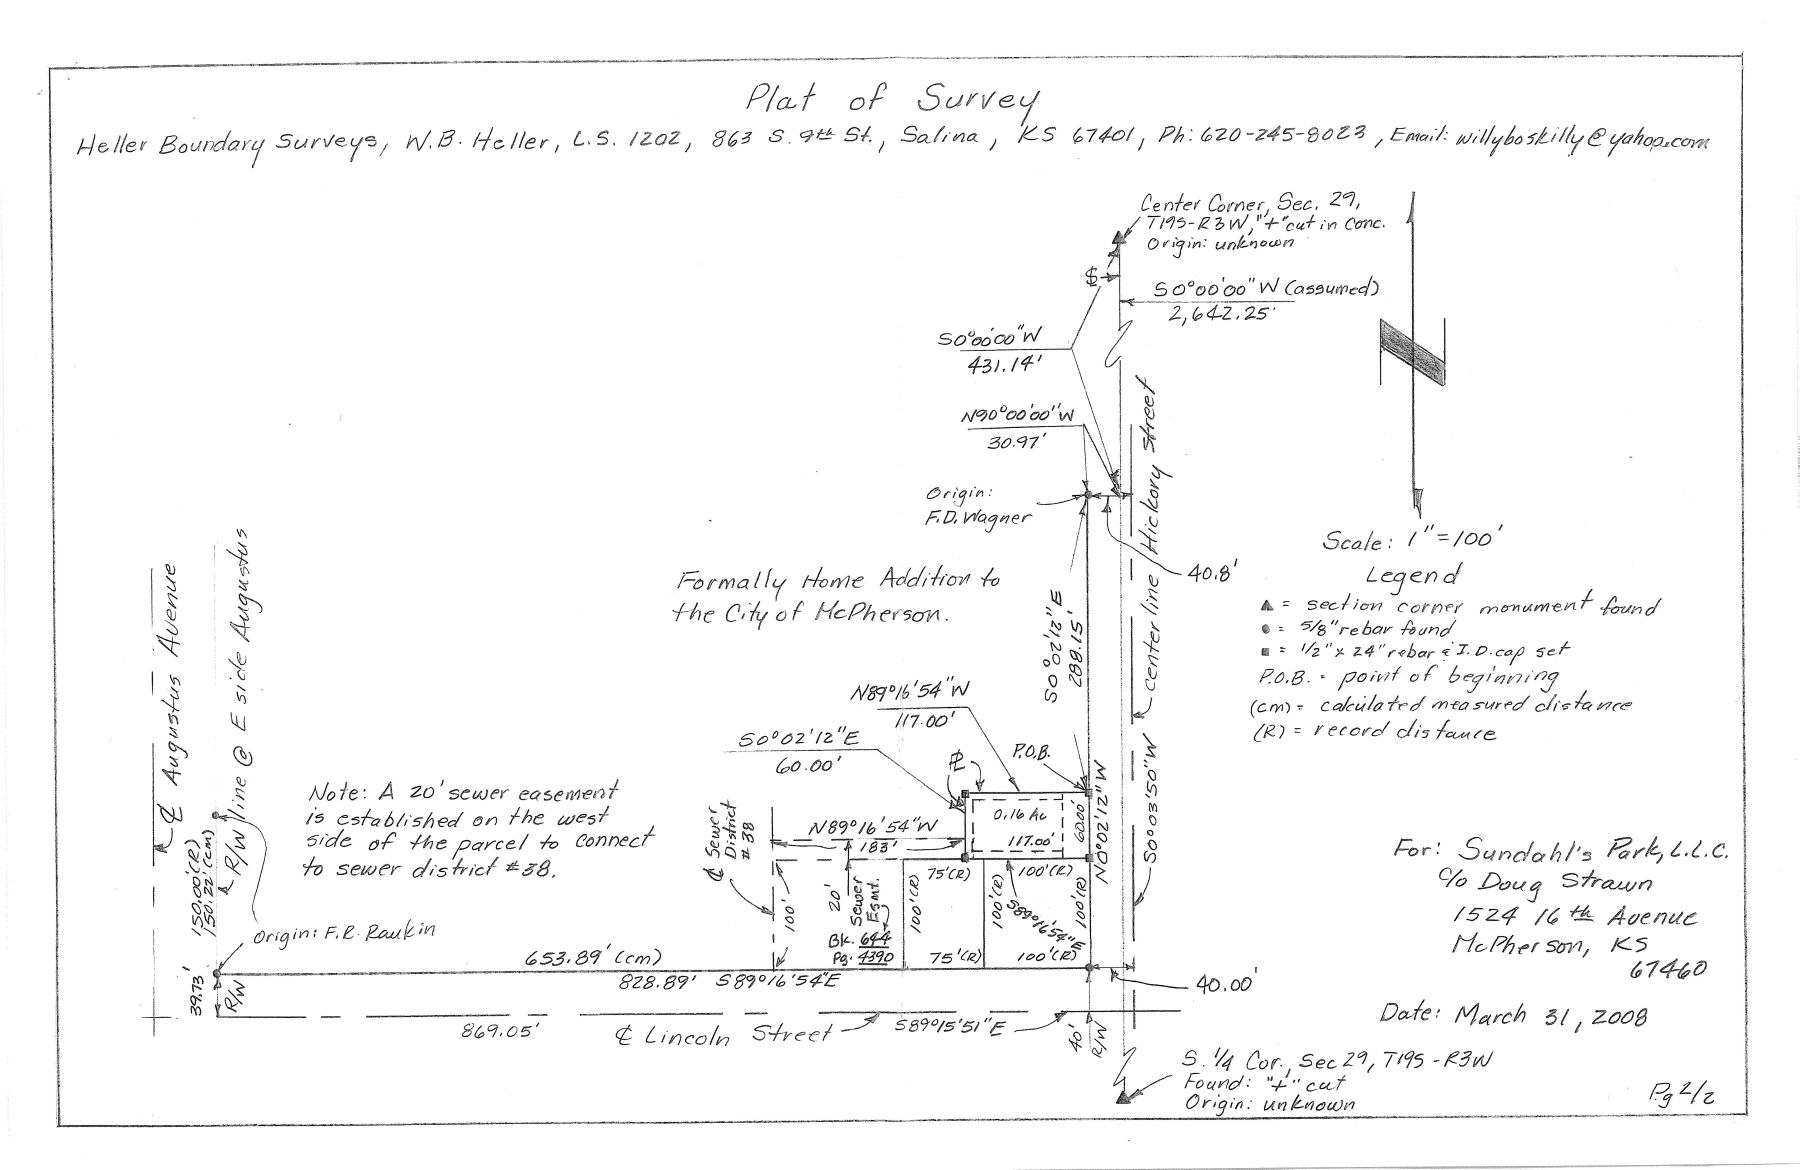 Plat of Survey
Heller Boundary Surveys, W.B. Heller, L.S. 1202, 863 S. 9th St., Salina, KS 67401, Ph: 620-245-8023, Email: willyboskilly@yahoo.com
Center Corner, Sec. 29,
T19S-R3W, "+" cut in Conc.
Origin: unknown
℄
S0°00'00"W (assumed)
2,642.25'
S0°00'00"W
431.14'
N90°00'00"W
30.97'
Origin:
F.D. Wagner
40.8'
center line Hickory Street
S0°03'50"W
S0°02'12"E
288.15'
Scale: 1"=100'
Legend
▲ = section corner monument found
● = 5/8" rebar found
■ = 1/2" x 24" rebar & I.D. cap set
P.O.B. = point of beginning
(cm) = calculated measured distance
(R) = record distance
Formally Home Addition to
the City of McPherson.
N89°16'54"W
117.00'
S0°02'12"E
60.00'
℄
P.O.B.
0.16 Ac
117.00'
60.00'
N0°02'12"W
℄ Augustus Avenue
R/W line @ E side Augustus
150.00'(R)
150.22'(cm)
Note: A 20' sewer easement
is established on the west
side of the parcel to connect
to sewer district #38.
℄ Sewer
District
#38
N89°16'54"W
183'
100'
20'
Sewer
Esmt.
Bk. 644
Pg. 4390
75'(R)
100'(R)
100'(R)
100'(R)
S89°16'54"E
100'(R)
75'(R)
100'(R)
Origin: F.R. Raukin
653.89' (cm)
828.89' S89°16'54"E
39.73'
R/W
40.00'
869.05'
℄ Lincoln Street
S89°15'51"E
40'
R/W
S. 1/4 Cor., Sec 29, T19S-R3W
Found: "+" cut
Origin: unknown
For: Sundahl's Park, L.L.C.
c/o Doug Strawn
1524 16th Avenue
McPherson, KS
67460
Date: March 31, 2008
Pg 2/2